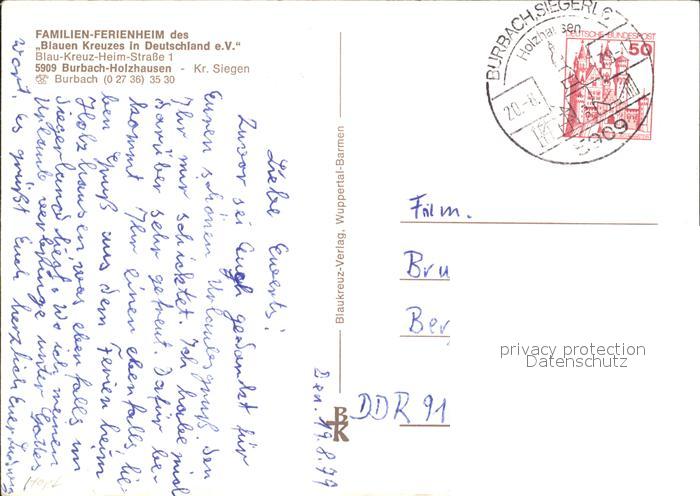 FAMILIEN-FERIENHEIM des
„Blauen Kreuzes in Deutschland e.V."
Blau-Kreuz-Heim-Straße 1
5909 Burbach-Holzhausen - Kr. Siegen
☎ Burbach (0 27 36) 35 30
Liebe Ewerts!
Zuvor sei Euch gedankt für
Euren schönen Urlaubsgruß. Den
Ihr mir schicktet. Ich habe mich
darüber sehr gefreut. Dafür be-
kommt Ihr einen ebenfalls lie-
ben Gruß aus dem Ferienheim
Holzhausen, was ebenfalls im
Siegerland liegt. Wo ich meinen
Urlaub verbringe unter Gottes
Wort. Es grüßt Euch herzlich Euer Ludwig
Den. 19.8.79
Blaukreuz-Verlag, Wuppertal-Barmen
BK
BURBACH, SIEGERL
Holzhausen
20.-8.79
5909
DEUTSCHE BUNDESPOST
50
Fam.
Bru
Ber
DDR 91
privacy protection
Datenschutz